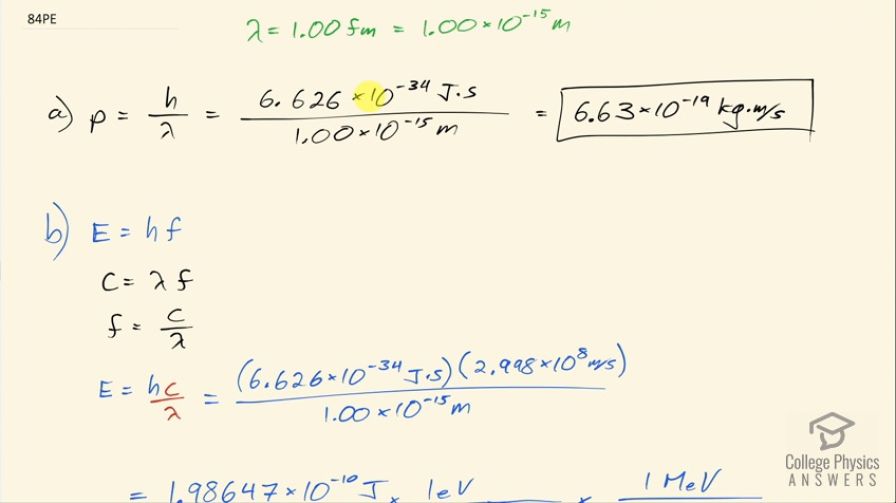 84PE
λ = 1.00 fm = 1.00×10⁻¹⁵ m
a) p = h/λ = 6.626×10⁻³⁴ J·s / 1.00×10⁻¹⁵ m = 6.63×10⁻¹⁹ kg·m/s
b) E = hf
C = λf
f = C/λ
E = hc/λ = (6.626×10⁻³⁴ J·s)(2.998×10⁸ m/s) / 1.00×10⁻¹⁵ m
= 1.98647×10⁻¹⁰ J × 1eV × 1 MeV
College Physics
ANSWERS